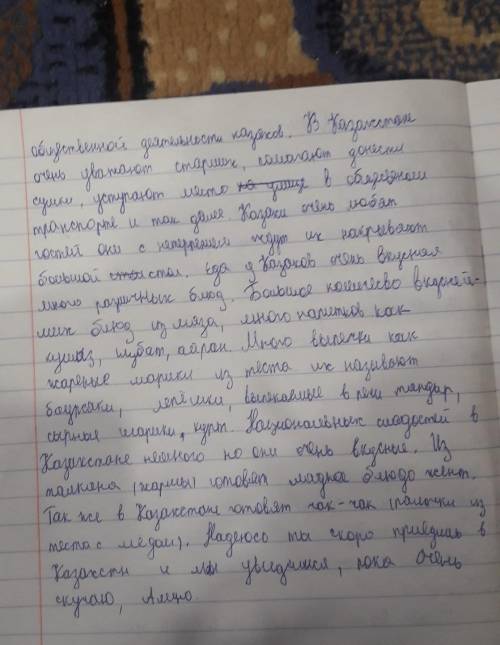 общественной деятельности казахов. В Казахстане
очень уважают старших, помогают донести
сумки, уступают место на улице в общественном
транспорте и так далее. Казахи очень любят
гостей они с нетерпением ждут их накрывают
большой стол. Еда у Казахов очень вкусная
много различных блюд. Большое количество вкусней-
ших блюд из мяса, много напитков как
кумыз, шубат, айран. Много выпечки как
жареные шарики из теста их называют
баурсаки, лепёшки, выпекаемые в печи тандыр,
сырные шарики, курт. Национальных сладостей в
Казахстане немного но они очень вкусные. Из
талкана (жармы) готовят сладкое блюдо жент.
Так же в Казахстане готовят чак-чак (палочки из
теста с мёдом). Надеюсь ты скоро приедешь в
Казахстн и мы увидимся, пока очень
скучаю,